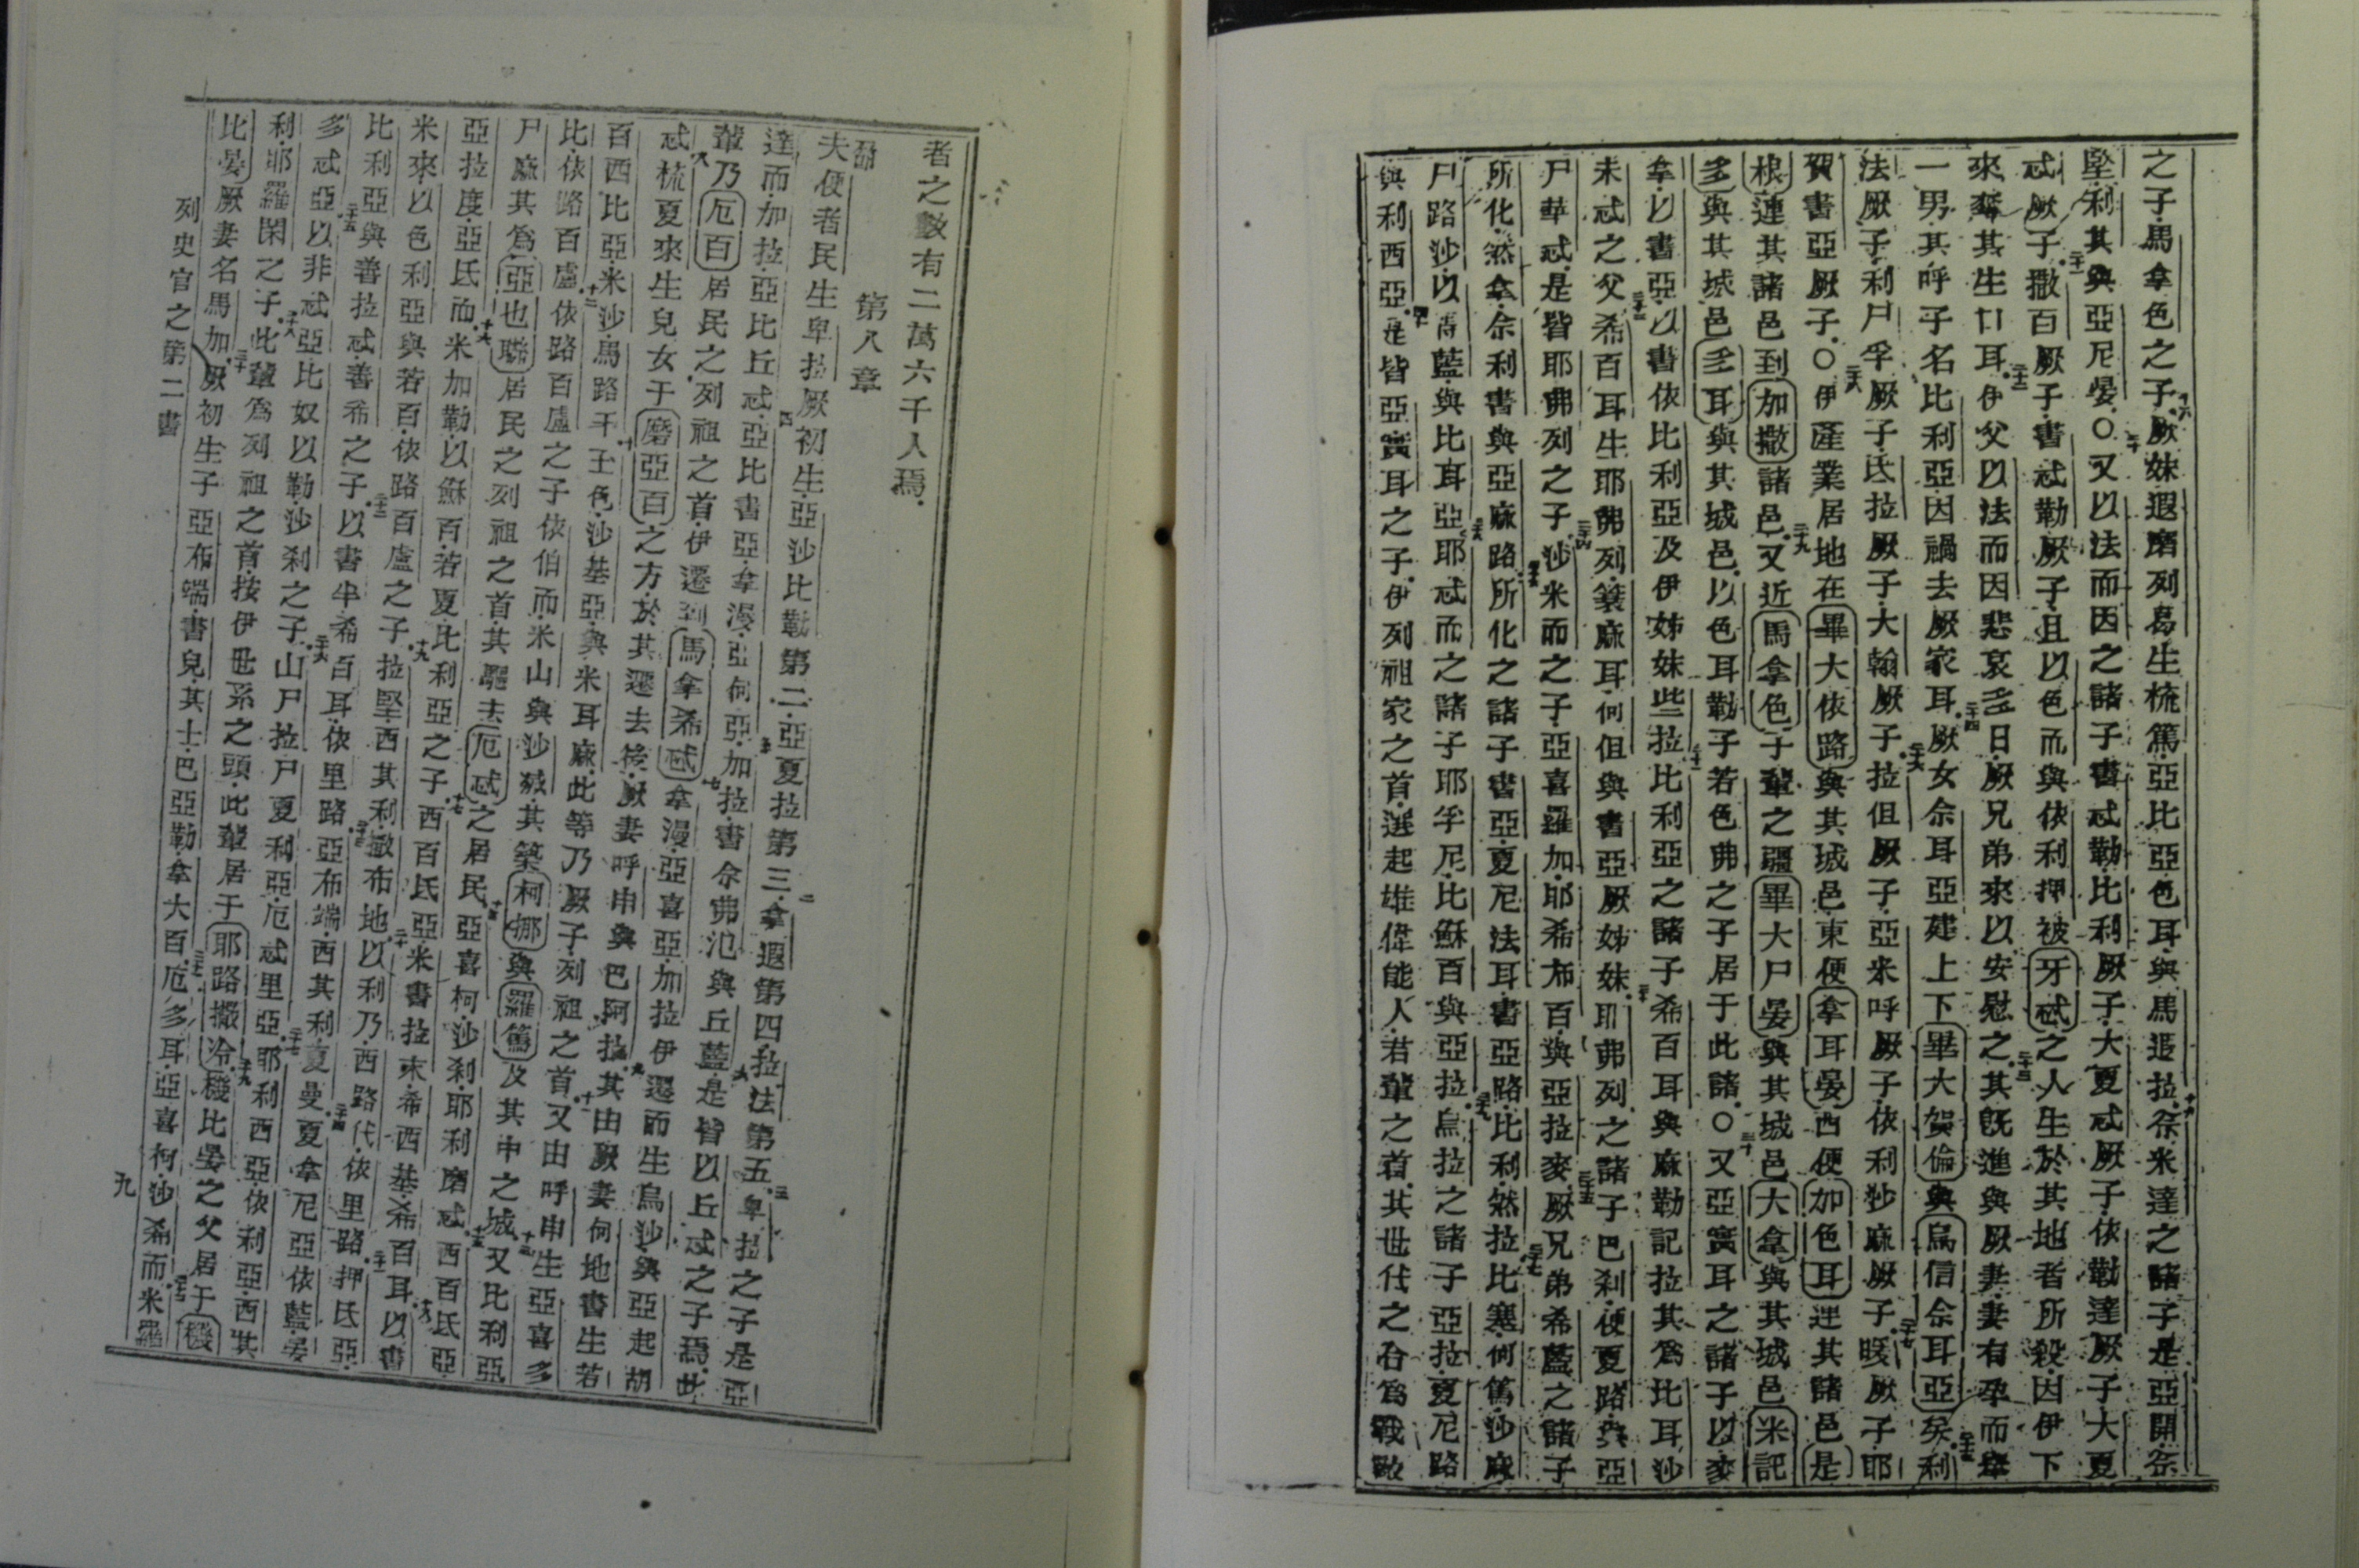 之子馬拿色之子厥妹遐磨列易生梳篤亞比亞色耳與馬遐拉祭米達之諸子是亞開祭
堅利其與亞尼晏○又以法而因之諸子書忒勒比利厥子大夏忒厥子依勒達厥子大夏
忒厥子撒百厥子書忒勒厥子且以色而與依利押被牙忒之人生於其地者所殺因伊下
來奪其生口耳伊父以法而因悲哀多日厥兄弟來以安慰之其既進與厥妻妻有孕而產
一男其呼子名比利亞因禍去厥家耳厥女余耳亞建上下畢大賀倫與烏信余耳亞矣利
法厥子利尸孚厥子氐拉厥子大翰厥子拉但厥子亞米呼厥子依利沙麻厥子曖厥子耶
賀書亞厥子○伊產業居地在畢大依路與其城邑東便拿耳晏西便加色耳連其諸邑是
根連其諸邑到加撒諸邑又近馬拿色子輩之疆畢大尸晏與其城邑大拿與其城邑米記
多與其城邑多耳與其城邑以色耳勒子若色弗之子居于此諸○又亞實耳之諸子以麥
拿以書亞以書依比利亞及伊姊妹些拉比利亞之諸子希百耳與麻勒記拉其為比耳沙
未忒之父希百耳生耶弗列簑麻耳何但與書亞厥姊妹耶弗列之諸子巴剎便夏路與亞
尸華忒是皆耶弗列之子沙米而之子亞喜羅加耶希布百與亞拉麥厥兄弟希藍之諸子
所化然拿余利書與亞麻路所化之諸子書亞夏尼法耳書亞路比利然拉比塞何篤沙麻
尸路沙以藍與比耳亞耶忒而之諸子耶孚尼比穌百與亞拉烏拉之諸子亞拉夏尼路
與利西亞是皆亞實耳之子伊列祖家之首選起雄偉能人若輩之首其世代之合為戰敵
者之數有二萬六千人焉
第八章
夫便者民生卑拉厥初生亞沙比勒第二亞夏拉第三拿遐第四拉法第五卑拉之子是亞
達而加拉亞比丘忒亞比書亞拿漫亞何亞加拉書余弗氾與丘藍是皆以丘忒之子焉此
輩乃厄百居民之列祖之首伊遷到馬拿希忒拿漫亞喜亞加拉伊遷而生烏沙與亞起胡
忒梳夏來生兒女于磨亞百之方於其遷去後厥妻呼申與巴阿拉其由厥妻何地書生若
百西比亞米沙馬路干壬色沙基亞與米耳麻此等乃厥子列祖之首又由呼申生亞喜多
比依路百盧依路百盧之子依伯而米山與沙㓕其築柯挪與羅篤及其中之城又比利亞
尸麻其為亞也聯居民之列祖之首其驅去厄忒之居民亞喜柯沙剎耶利磨忒西百氐亞
亞拉度亞氐而米加勒以穌百若夏比利亞之子西百氐亞米書拉末希西基希百耳以書
米來以色利亞與若百依路百盧之子拉堅西其利撒布地以利乃西路代依里路押氐亞
比利亞與善拉忒善希之子以書半希百耳依里路亞布端西其利夏曼夏拿尼亞依藍晏
多忒亞以非忒亞比奴以勒沙剎之子山尸拉尸夏利亞厄忒里亞耶利西亞依利亞西其
利耶羅閑之子此輩為列祖之首按伊世系之頭此輩居于耶路撒冷機比晏之父居于機
比晏厥妻名馬加厥初生子亞布端書兒其士巴亞勒拿大百厄多耳亞喜柯沙希而米羅
列史官之第二書
九